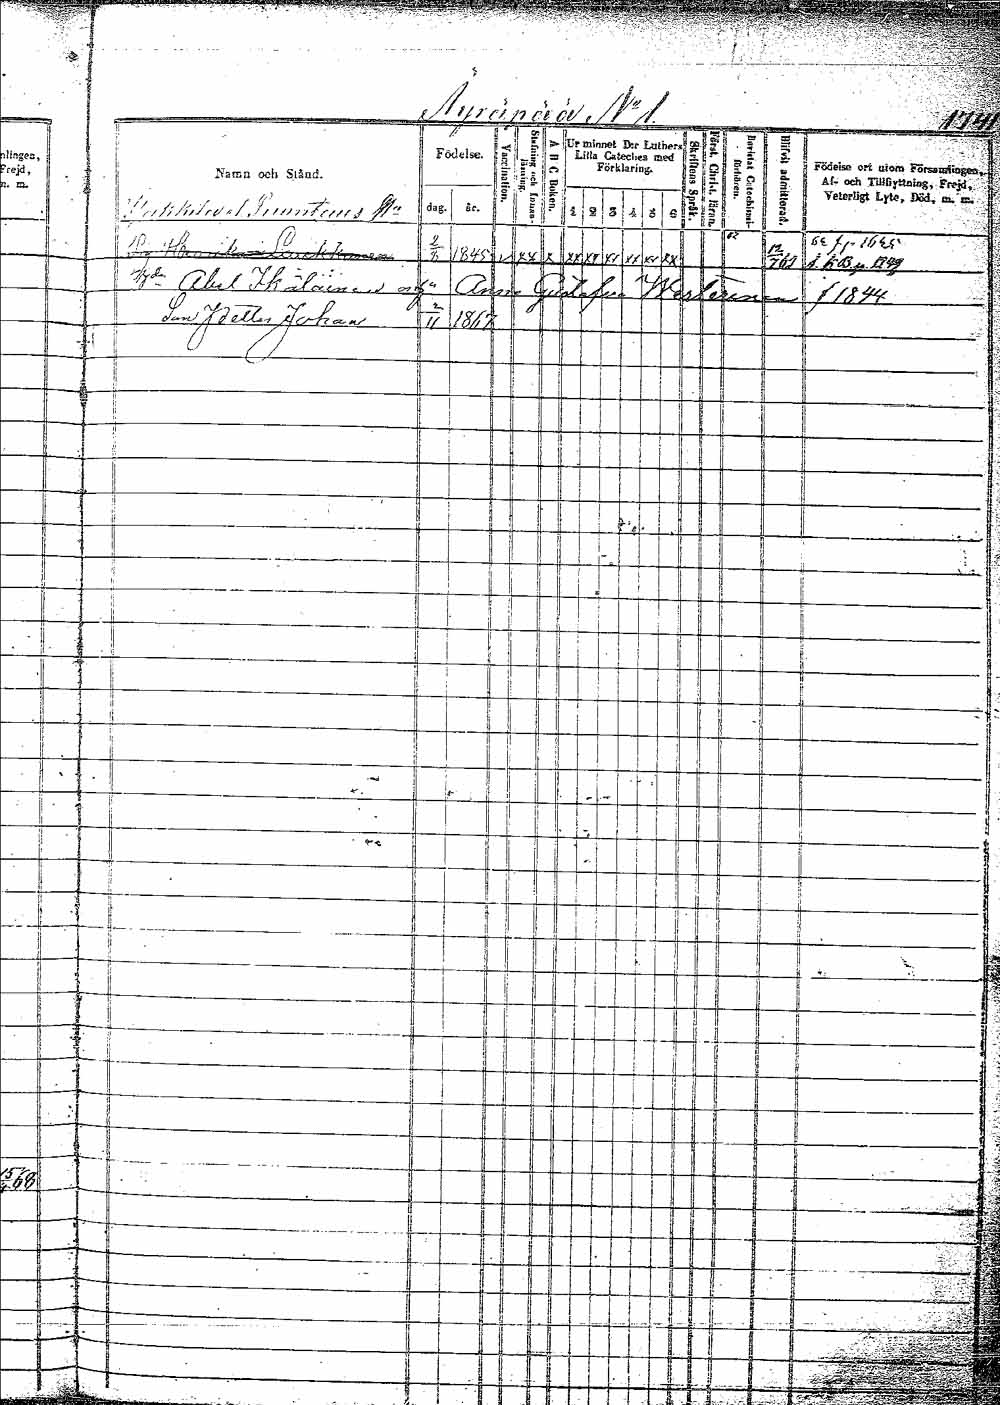 Äyräpää No 1.
1741
nlingen,
Frejd,
n. m.
Namn och Stånd.
Födelse.
dag. år.
Vaccination.
Stafning och Innanläsning.
A B C Boken.
Ur minnet Der Luthers
Lilla Cateches med
Förklaring.
1 2 3 4 5 6
Skriftens Språk.
Först. Christ. läran.
Bevistat Catechismi-
förhören.
Blifvit admitterad.
Födelse ort utom Församlingen,
Af- och Tillflyttning, Frejd,
Veterligt Lyte, Död, m. m.
1845 xx x xx xx xx xx xx xx
Abel Ikäläinen Anna Gustafva Westerinen f 1844
Son Detlef Johan 2/11 1867
15/ 68